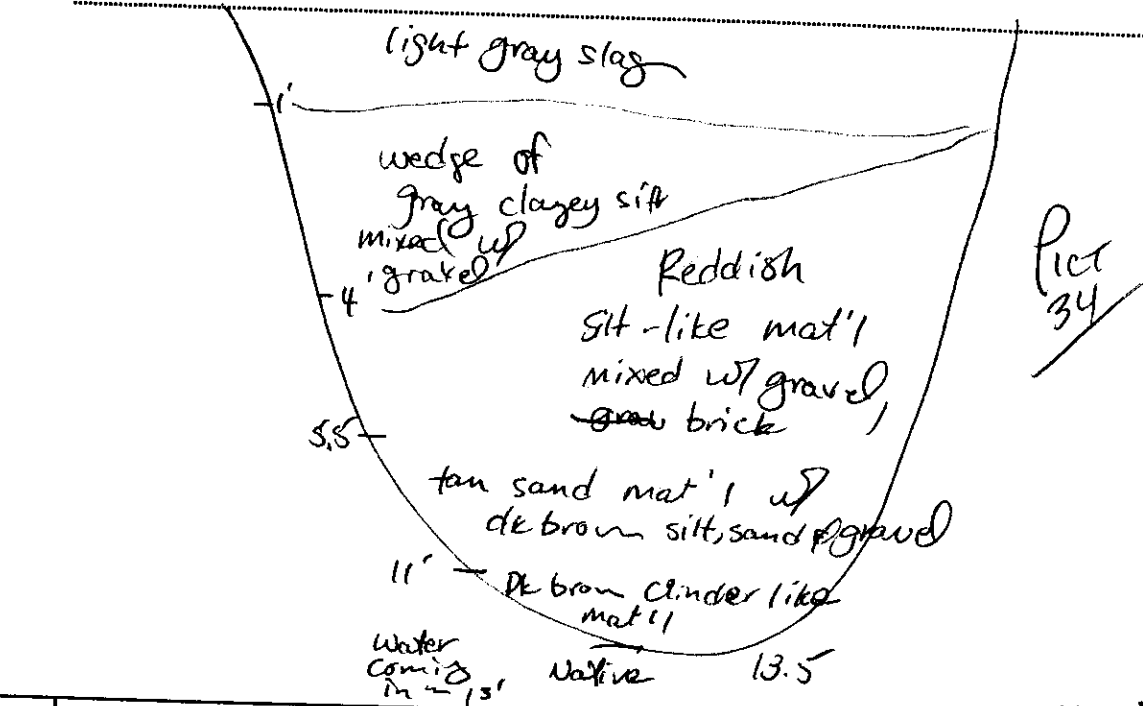 light gray slag
1'
wedge of
gray clayey silt
mixed w/
gravel
4
Reddish
silt-like mat'l
mixed w/ gravel,
brick
Pict
34
5.5
tan sand mat'l w/
dk brown silt, sand & gravel
11'
Dk brown cinder like
mat'l
water
coming
in ~ 13'
Native
13.5